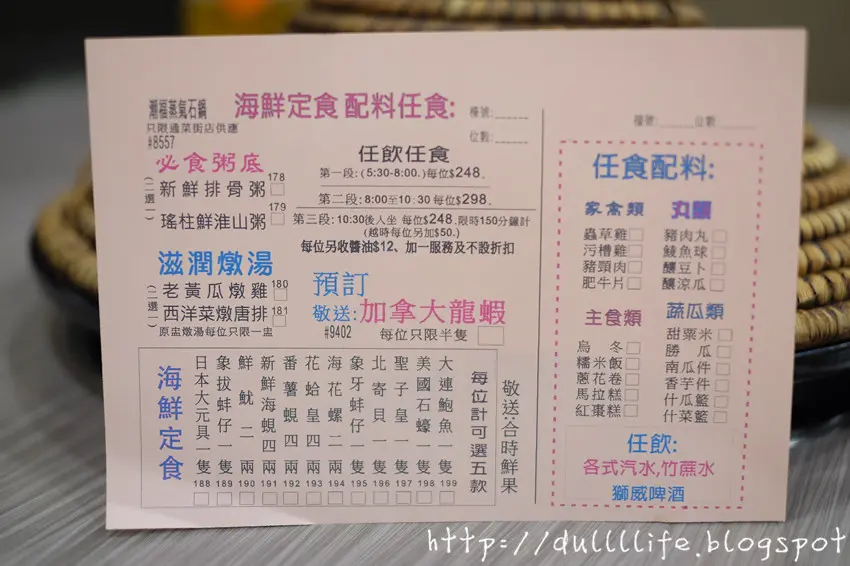 潮福蒸氣石鍋
只限通菜街店供應
#8557
海鮮定食 配料任食:
檯號:
位數:
必食粥底
(二選一)
新鮮排骨粥 178
瑤柱鮮淮山粥 179
滋潤燉湯
(二選一)
老黃瓜燉雞 180
西洋菜燉唐排 181
原盅燉湯每位只限一盅
任飲任食
第一段: (5:30-8:00.) 每位$248.
第二段: 8:00至10:30 每位$298.
第三段: 10:30後入坐 每位$248.限時150分鐘計
(越時每位另加$50.)
每位另收醬油$12、加一服務及不設折扣
預訂
敬送:加拿大龍蝦
#9402
每位只限半隻
海鮮定食
日本大元貝一隻 188
象拔蚌仔一隻 189
鮮魷二兩 190
新鮮海蜆四兩 191
番薯蜆四兩 192
花蛤皇四兩 193
海花螺二兩 194
象牙蚌仔一隻 195
北寄貝一隻 196
聖子皇一隻 197
美國石蠔一隻 198
大連鮑魚一隻 199
每位計可選五款
敬送:合時鮮果
檯號:
位數:
任食配料:
家禽類
蟲草雞
污槽雞
豬頸肉
肥牛片
丸類
豬肉丸
鯪魚球
釀豆卜
釀涼瓜
主食類
烏冬
糯米飯
蔥花卷
馬拉糕
紅棗糕
蔬瓜類
甜粟米
勝瓜
南瓜件
香芋件
什瓜籃
什菜籃
任飲:
各式汽水,竹蔗水
獅威啤酒
http://dullllife.blogspot